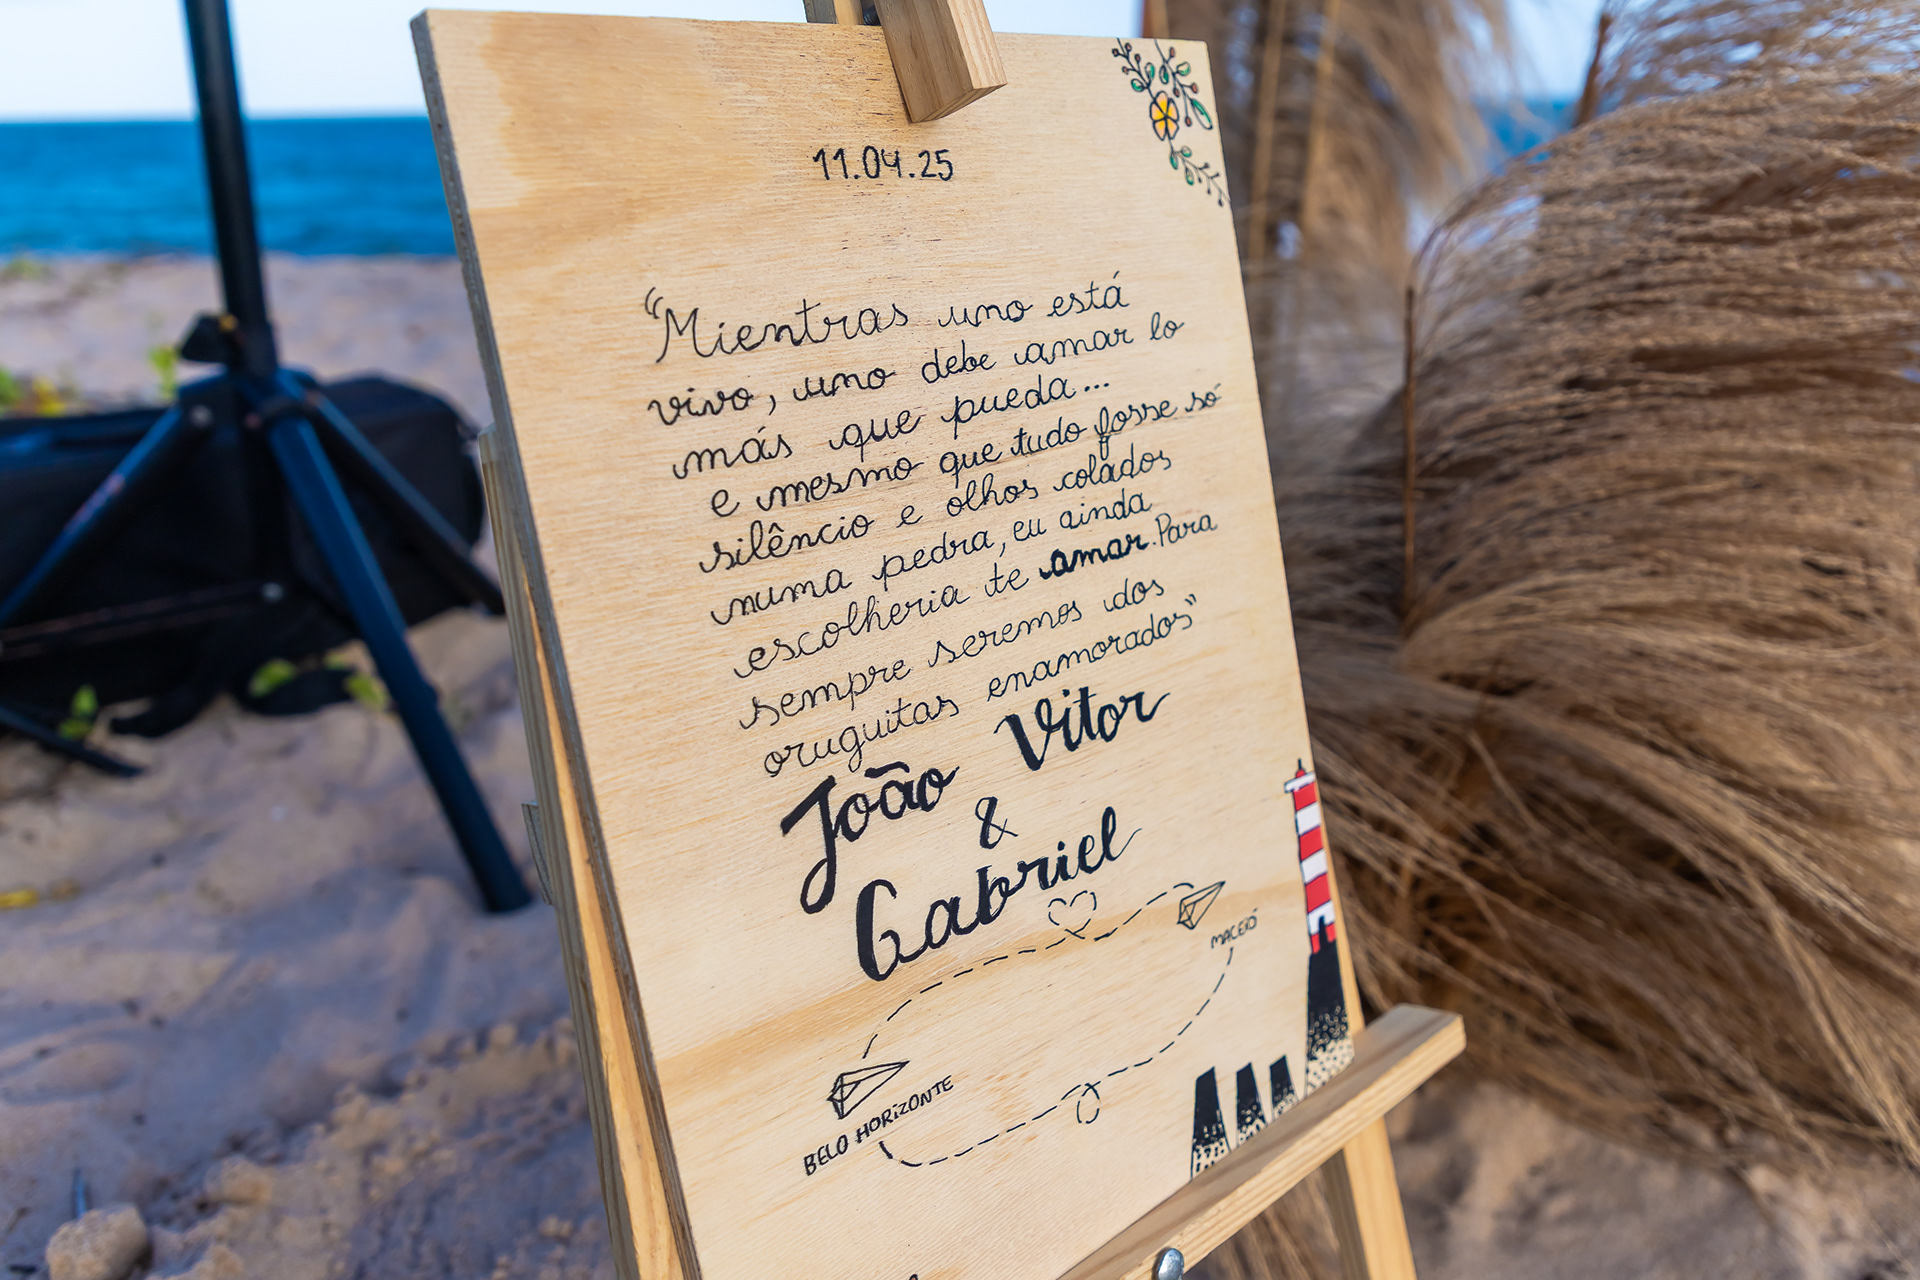 11.04.25
“Mientras uno está
vivo, uno debe amar lo
más que pueda...
e mesmo que tudo fosse só
silêncio e olhos colados
numa pedra, eu ainda
escolheria te amar. Para
sempre seremos dos
oruguitas enamorados”
João Vitor
&
Gabriel
MACEIÓ
BELO HORIZONTE